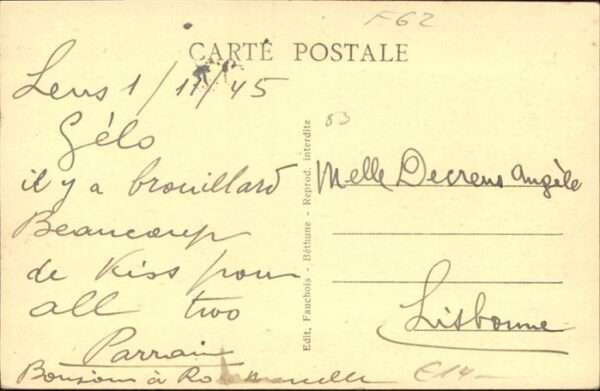 F62
CARTE POSTALE
Lens 1/11/45
Gélo
il y a brouillard
Beaucoup
de Kiss pour
all two
Parrain
Bonjour à
53
Edit. Fauchois - Béthune - Reprod. interdite
Melle Decrens Angèle
Lisbonne
€14-